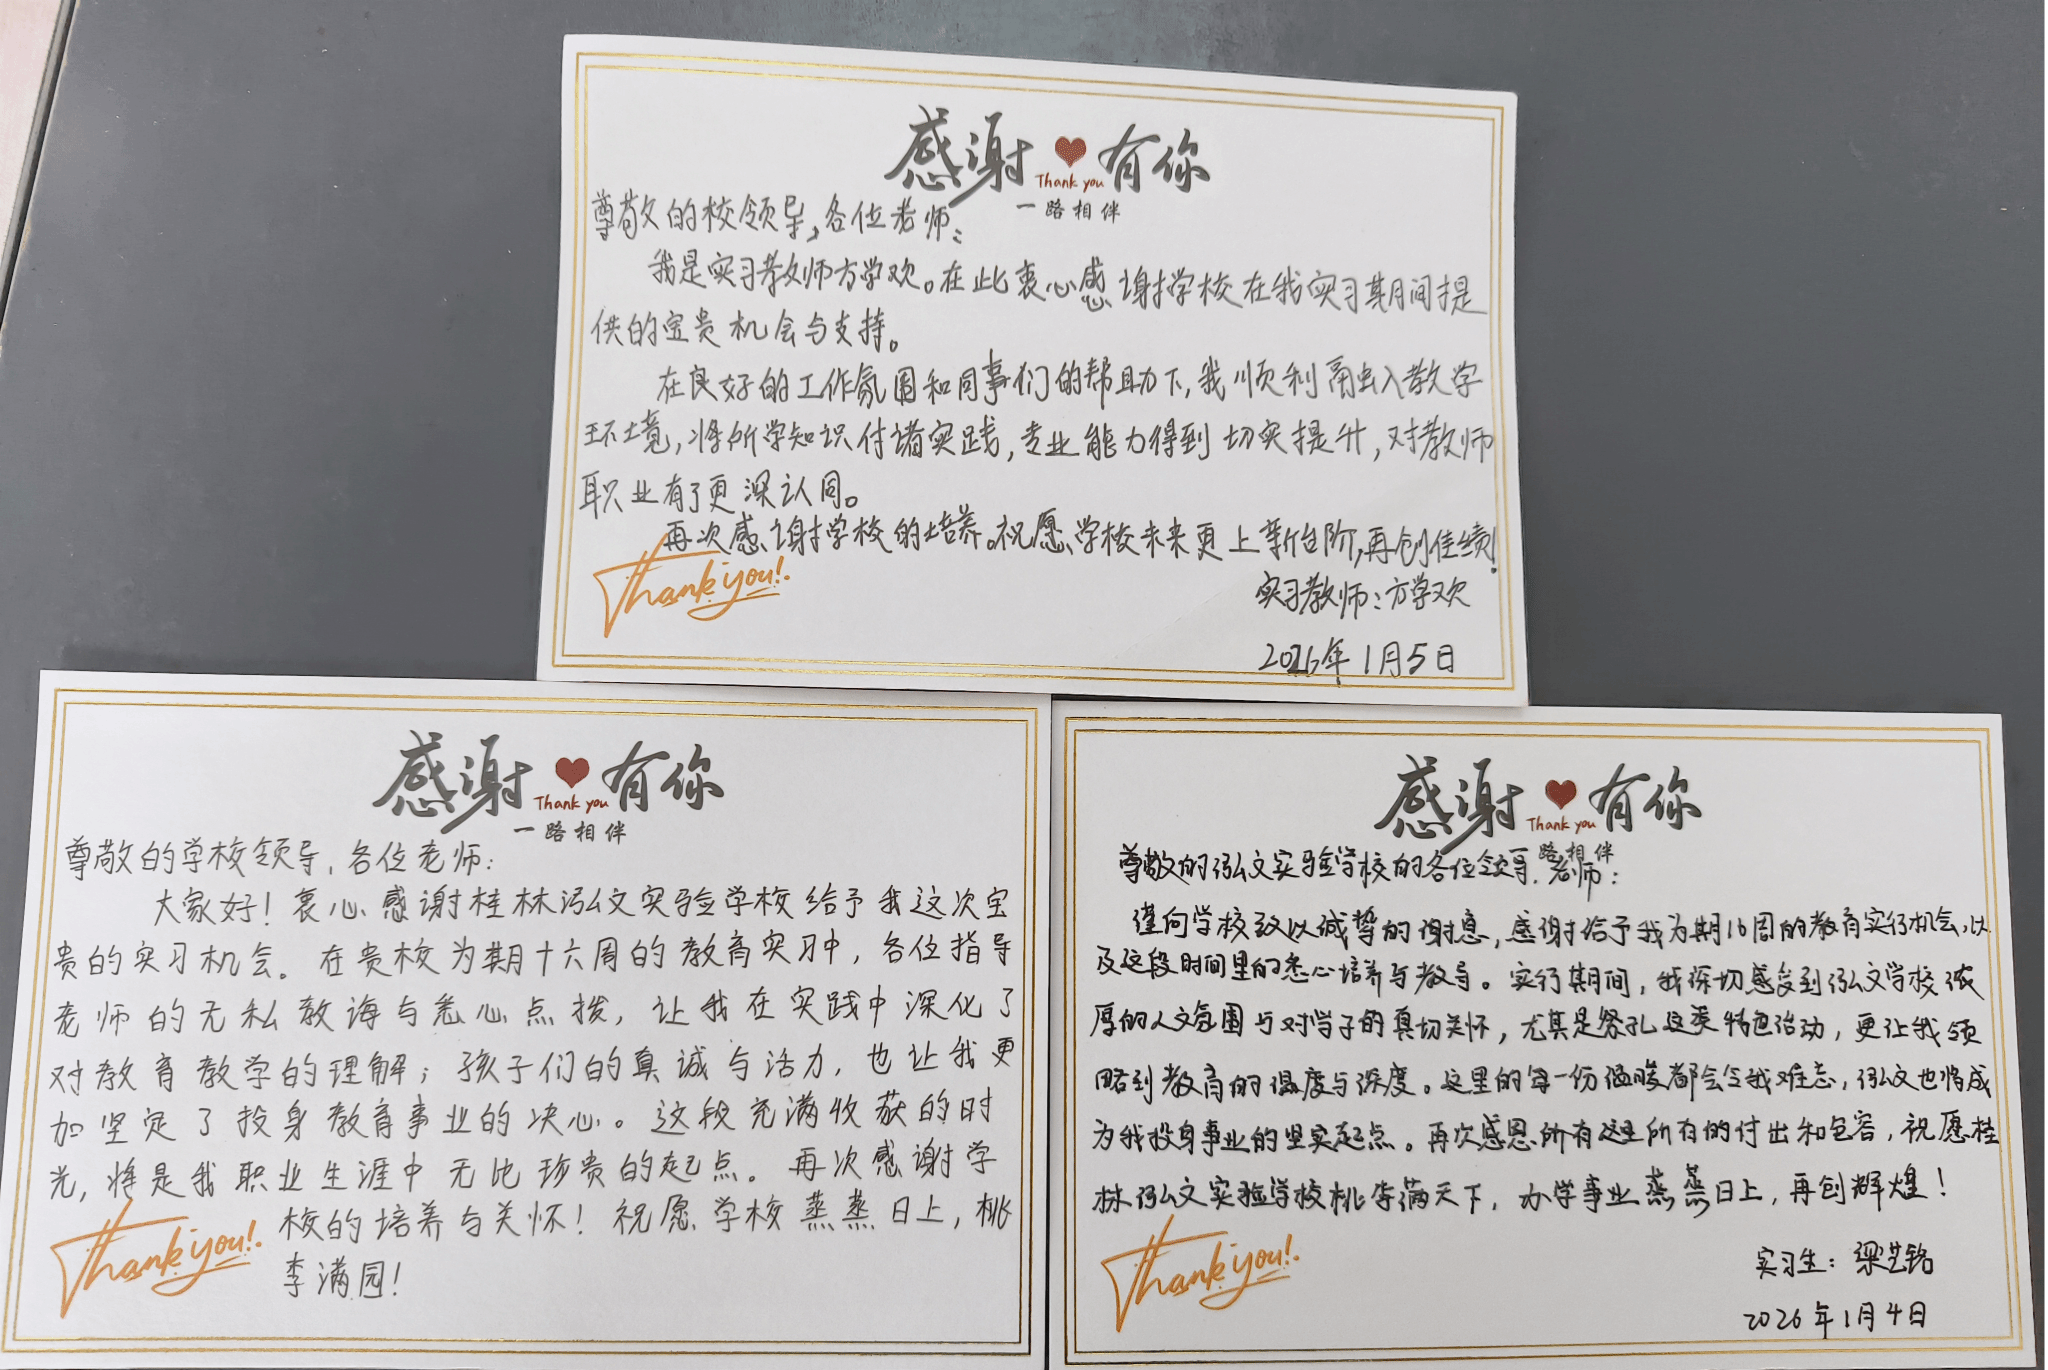 感谢 有你
Thank you
一路相伴
尊敬的校领导,各位老师:
我是实习教师方学欢。在此衷心感谢学校在我实习期间提
供的宝贵机会与支持。
在良好的工作氛围和同事们的帮助下,我顺利融入教学
环境,将所学知识付诸实践,专业能力得到切实提升,对教师
职业有了更深认同。
再次感谢学校的培养。祝愿学校未来更上新台阶,再创佳绩!
Thank you!
实习教师:方学欢
2026年1月5日
感谢 有你
Thank you
一路相伴
尊敬的学校领导,各位老师:
大家好!衷心感谢桂林泓文实验学校给予我这次宝
贵的实习机会。在贵校为期十六周的教育实习中,各位指导
老师的无私教诲与悉心点拨,让我在实践中深化了
对教育教学的理解;孩子们的真诚与活力,也让我更
加坚定了投身教育事业的决心。这段充满收获的时
光,将是我职业生涯中无比珍贵的起点。再次感谢学
校的培养与关怀!祝愿学校蒸蒸日上,桃
李满园!
Thank you!
感谢 有你
Thank you
一路相伴
尊敬的泓文实验学校的各位领导,老师:
谨向学校致以诚挚的谢意,感谢给予我为期16周的教育实习机会,以
及这段时间里的悉心培养与教导。实习期间,我深切感受到泓文学校浓
厚的人文氛围与对学子的真切关怀,尤其是祭孔这类特色活动,更让我领
略到教育的温度与深度。这里的每一份温暖都会令我难忘,泓文也将成
为我投身事业的坚实起点。再次感恩所有这里所有的付出和包容,祝愿桂
林泓文实验学校桃李满天下,办学事业蒸蒸日上,再创辉煌!
Thank you!
实习生:梁艺铭
2026年1月4日